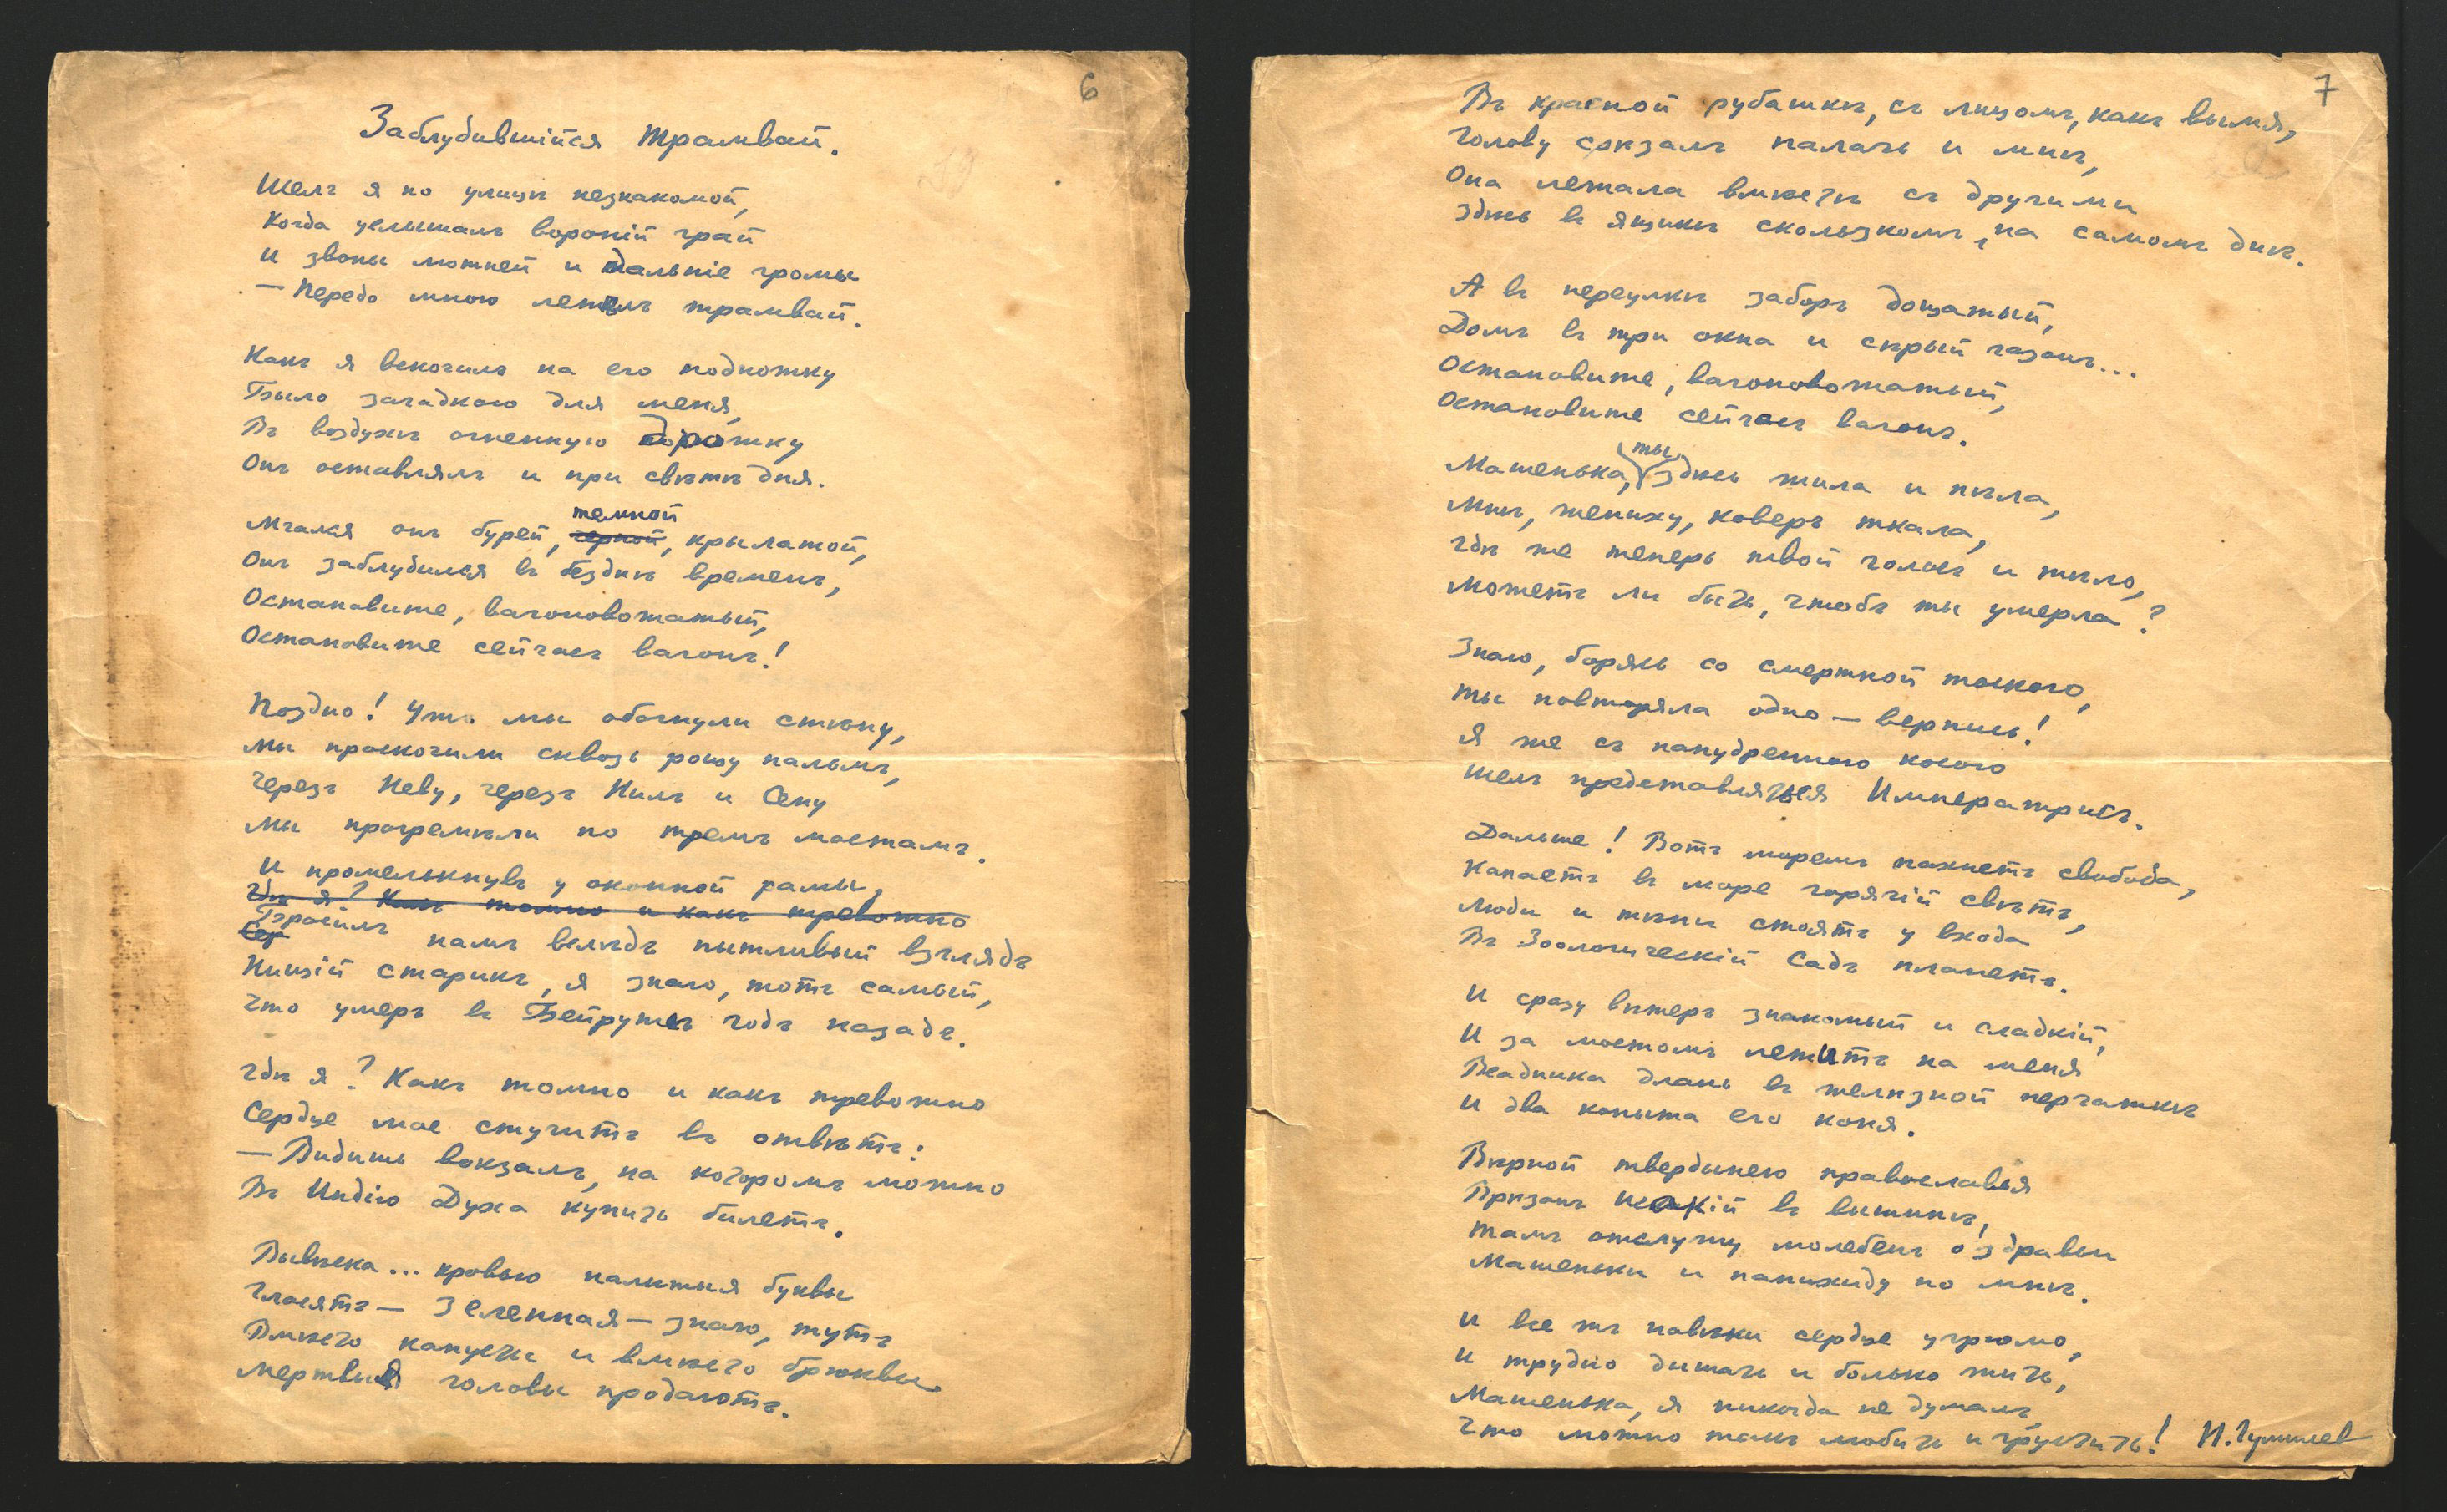 6
Заблудившійся трамвай.
Шелъ я по улицѣ незнакомой,
Когда услышалъ вороній грай
И звоны лютней и дальніе громы
— Передо мною летѣлъ трамвай.
Какъ я вскочилъ на его подножку
Было загадкою для меня,
Въ воздухѣ огненную дорожку
Онъ оставлялъ и при свѣтѣ дня.
темной
Мчался онъ бурей, черной, крылатой,
Онъ заблудился въ безднѣ временъ,
Остановите, вагоновожатый,
Остановите сейчасъ вагонъ!
Поздно! Ужъ мы обогнули стѣну,
Мы проскочили сквозь рощу пальмъ,
Черезъ Неву, черезъ Нилъ и Сену
Мы прогремѣли по тремъ мостамъ.
И промелькнувъ у оконной рамы,
Гдѣ я? Какъ томно и какъ тревожно
Бросилъ намъ вслѣдъ пытливый взглядъ
Сер
Нищій старикъ, я знаю, тотъ самый,
Что умеръ въ Бейрутѣ годъ назадъ.
Гдѣ я? Какъ томно и какъ тревожно
Сердце мое стучитъ въ отвѣтъ:
— Видишь вокзалъ, на которомъ можно
Въ Индію Духа купить билетъ.
Вывѣска... кровью налитыя буквы
Гласятъ — Зеленная — знаю, тутъ
Вмѣсто капусты и вмѣсто брюквы
Мертвыя головы продаютъ.
7
Въ красной рубашкѣ, съ лицомъ, какъ вымя,
Голову срѣзалъ палачъ и мнѣ,
Она лежала вмѣстѣ съ другими
Здѣсь въ ящикѣ скользкомъ, на самомъ днѣ.
А въ переулкѣ заборъ дощатый,
Домъ въ три окна и сѣрый газонъ...
Остановите, вагоновожатый,
Остановите сейчасъ вагонъ.
ты
Машенька, здѣсь жила и пѣла,
Мнѣ, жениху, коверъ ткала,
Гдѣ же теперь твой голосъ и тѣло,
Можетъ ли быть, чтобъ ты умерла?
Знаю, борясь со смертной тоскою,
Ты повторяла одно — вернись!
Я же съ напудренною косою
Шелъ представляться Императрисъ.
Дальше! Вотъ моремъ пахнетъ свобода,
Капаетъ въ море горячій свѣтъ,
Люди и тѣни стоятъ у входа
Въ Зоологическій Садъ планетъ.
И сразу вѣтеръ знакомый и сладкій,
И за мостомъ летитъ на меня
Всадника длань въ желѣзной перчаткѣ
И два копыта его коня.
Вѣрной твердынею православья
Врѣзанъ Исакій въ вышинѣ,
Тамъ отслужу молебенъ о здравьи
Машеньки и панихиду по мнѣ.
И все жъ навѣки сердце угрюмо,
И трудно дышать и больно жить,
Машенька, я никогда не думалъ,
Что можно такъ любить и грустить! Н. Гумилев